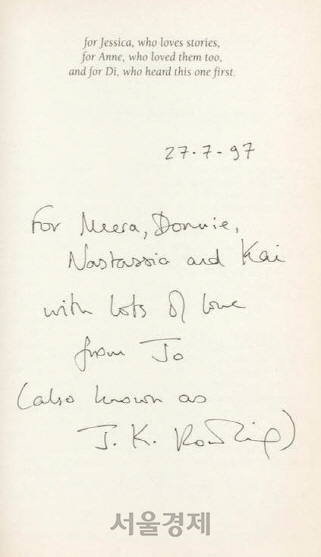 for Jessica, who loves stories,
for Anne, who loved them too,
and for Di, who heard this one first.
27-7-97
For Meera, Donnie,
Nastassia and Kai
with lots of love
from Jo
(also known as
J. K. Rowling)
서울경제